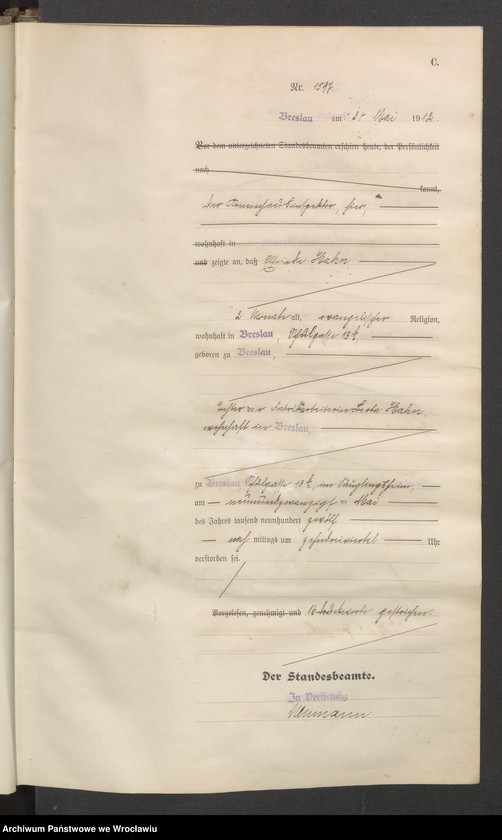 C.
Nr. 1597.
Breslau am 31 Mai 1912.
Vor dem unterzeichneten Standesbeamten erschien heute, der Persönlichkeit
nach
kannt,
der Armenhaus-Inspektor, hier,
wohnhaft in
und zeigte an, daß Hahn
2 Monate alt, evangelischer Religion,
wohnhaft in Breslau,
geboren zu Breslau,
Tochter der Fabrikarbeiterin Hahn,
wohnhaft in Breslau,
zu Breslau im Säuglingsheim,
am neunundzwanzigsten Mai
des Jahres tausend neunhundert zwölf
nach mittags um Uhr
verstorben sei.
Vorgelesen, genehmigt und 16 Druckworte gestrichen.
Der Standesbeamte.
In Vertretung
Neumann
Archiwum Państwowe we Wrocławiu